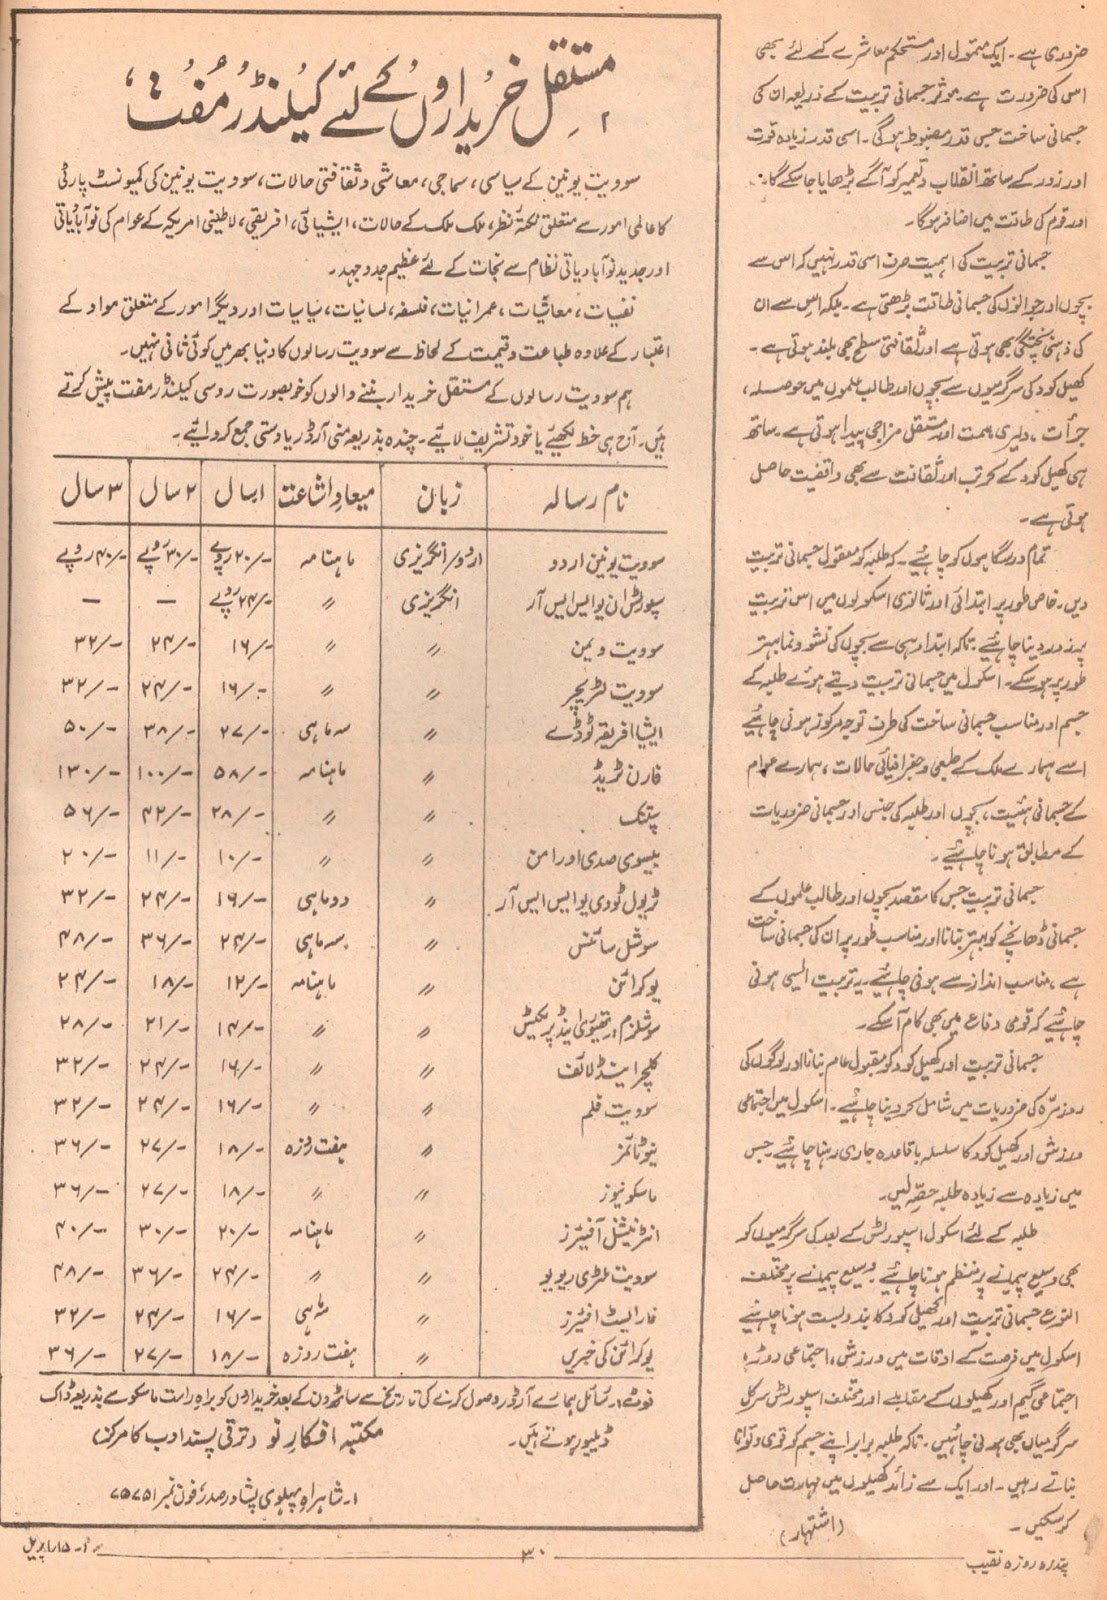 ضروری ہے۔ ایک متمول اور مستحکم معاشرے کے لئے بھی
اس کی ضرورت ہے۔ موثر جسمانی تربیت کے ذریعہ ان کی
جسمانی ساخت جس قدر مضبوط ہوگی۔ اسی قدر زیادہ قوت
اور زور کے ساتھ انقلاب و تعمیر کو آگے بڑھایا جا سکے گا۔
اور قوم کی طاقت میں اضافہ ہوگا۔
جسمانی تربیت کی اہمیت صرف اسی قدر نہیں کہ اس سے
بچوں اور جوانوں کی جسمانی طاقت بڑھتی ہے۔ بلکہ اس سے ان
کی ذہنی پختگی بھی ہوتی ہے اور ثقافتی سطح بھی بلند ہوتی ہے۔
کھیل کود کی سرگرمیوں سے بچوں اور طالب علموں میں حوصلہ،
جرأت، دلیری ہمت اور مستقل مزاجی پیدا ہوتی ہے۔ ساتھ
ہی کھیل کود کے کرتب اور ثقافت سے بھی واقفیت حاصل
ہوتی ہے۔
تمام درسگاہوں کو چاہئیے۔ کہ طلبہ کو معقول جسمانی تربیت
دیں۔ خاص طور پر ابتدائی اور ثانوی اسکولوں میں اس تربیت
پر زور دینا چاہئیے۔ تاکہ ابتداء ہی سے بچوں کی نشو و نما بہتر
طور پر ہو سکے۔ اسکول میں جسمانی تربیت دیتے ہوئے طلبہ کے
جسم اور مناسب جسمانی ساخت کی طرف توجہ مرکوز ہونی چاہئیے
اسے ہمارے ملک کے طبعی و جغرافیائی حالات، ہمارے عوام
کے جسمانی ہئیت، بچوں اور طلبہ کی جنس اور جسمانی ضروریات
کے مطابق ہونا چاہئیے۔
جسمانی تربیت جس کا مقصد بچوں اور طالب علموں کے
جسمانی ڈھانچے کو بہتر بنانا اور مناسب طور پر ان کی جسمانی ساخت
ہے، مناسب انداز سے ہونی چاہئیے۔ یہ تربیت ایسی ہونی
چاہئیے کہ قومی دفاع میں بھی کام آ سکے۔
جسمانی تربیت اور کھیل کود کو مقبول عام بنانا اور لوگوں کی
روزمرّہ کی ضروریات میں شامل کر دینا چاہئیے۔ اسکول میں اجتماعی
ورزش اور کھیل کود کا سلسلہ باقاعدہ جاری رہنا چاہئیے۔ جس
میں زیادہ سے زیادہ طلبہ حصّہ لیں۔
طلبہ کے لئے اسکول اسپورٹس کے بعد کی سرگرمیوں کو
بھی وسیع پیمانے پر منظم ہونا چاہئیے۔ وسیع پیمانے پر مختلف
النوع جسمانی تربیت اور کھیل کود کا بندوبست ہونا چاہئیے
اسکول میں فرصت کے اوقات میں ورزش، اجتماعی دوڑ،
اجتماعی گیم اور کھیلوں کے مقابلے اور مختلف اسپورٹس سرکل
سرگرمیاں بھی ہونی چاہئیں۔ تاکہ طلبہ برابر اپنے جسم کو قوی و توانا
بناتے رہیں۔ اور ایک سے زائد کھیلوں میں مہارت حاصل
کر سکیں۔
(اشتہار)
مستقل خریداروں کے لئے کیلنڈر مفت
سوویت یونین کے سیاسی، سماجی، معاشی و ثقافتی حالات، سوویت یونین کی کمیونسٹ پارٹی
کا عالمی امور سے متعلق نکتۂ نظر، ملک ملک کے حالات، ایشیائی، افریقی، لاطینی امریکہ کے عوام کی نوآبادیاتی
اور جدید نوآبادیاتی نظام سے نجات کے لئے عظیم جدوجہد۔
نفسیات، معاشیات، عمرانیات، فلسفہ، لسانیات، سیاسیات اور دیگر امور کے متعلق مواد کے
اعتبار کے علاوہ طباعت و قیمت کے لحاظ سے سوویت رسالوں کا دنیا بھر میں کوئی ثانی نہیں۔
ہم سوویت رسالوں کے مستقل خریدار بننے والوں کو خوبصورت روسی کیلنڈر مفت پیش کرتے
ہیں۔ آج ہی خط لکھئیے یا خود تشریف لائیے۔ چندہ بذریعہ منی آرڈر یا دستی جمع کروائیے۔
نام رسالہ زبان میعاد اشاعت ۱ سال ۲ سال ۳ سال
سوویت یونین اردو اردو/انگریزی ماہنامہ ۲۰/- روپے ۳۰/- روپے ۴۰/- روپے
سپورٹس ان یو ایس ایس آر انگریزی 〃 ۲۴/- روپے — —
سوویت ویمن 〃 〃 ۱۶/- ۲۴/- ۳۲/-
سوویت لٹریچر 〃 〃 ۱۶/- ۲۴/- ۳۲/-
ایشیا افریقہ ٹوڈے 〃 سہ ماہی ۲۷/- ۳۸/- ۵۰/-
فارن ٹریڈ 〃 ماہنامہ ۵۸/- ۱۰۰/- ۱۳۰/-
سپتنک 〃 〃 ۲۸/- ۴۲/- ۵۶/-
بیسوی صدی اور امن 〃 〃 ۱۰/- ۱۱/- ۲۰/-
ٹریول ٹو دی یو ایس ایس آر 〃 دو ماہی ۱۶/- ۲۴/- ۳۲/-
سوشل سائنس 〃 سہ ماہی ۲۴/- ۳۶/- ۴۸/-
یوکرائن 〃 ماہنامہ ۱۲/- ۱۸/- ۲۴/-
سوشلزم؛ تھیوری اینڈ پریکٹس 〃 〃 ۱۴/- ۲۱/- ۲۸/-
کلچر اینڈ لائف 〃 〃 ۱۶/- ۲۴/- ۳۲/-
سوویت فلم 〃 〃 ۱۶/- ۲۴/- ۳۲/-
نیو ٹائمز 〃 ہفت روزہ ۱۸/- ۲۷/- ۳۶/-
ماسکو نیوز 〃 〃 ۱۸/- ۲۷/- ۳۶/-
انٹرنیشنل آفئیرز 〃 ماہنامہ ۲۰/- ۳۰/- ۴۰/-
سوویت ملٹری ریویو 〃 〃 ۲۴/- ۳۶/- ۴۸/-
فار ایسٹ افئیرز 〃 سہ ماہی ۱۶/- ۲۴/- ۳۲/-
یوکرائن کی خبریں 〃 ہفت روزہ ۱۸/- ۲۷/- ۳۶/-
نوٹ:۔ رسائل ہمارے آرڈر وصول کرنے کی تاریخ سے ساٹھ دن کے بعد خریداروں کو براہ راست ماسکو سے بذریعہ ڈاک
ڈیلیور ہوتے ہیں۔ مکتبہ افکارِ نو (ترقی پسند ادب کا مرکز)
۱۔ شاہراہِ پہلوی پشاور صدر، فون نمبر ۷۵۷۵۱
پندرہ روزہ نقیب ۳۰ ۱۵ اپریل